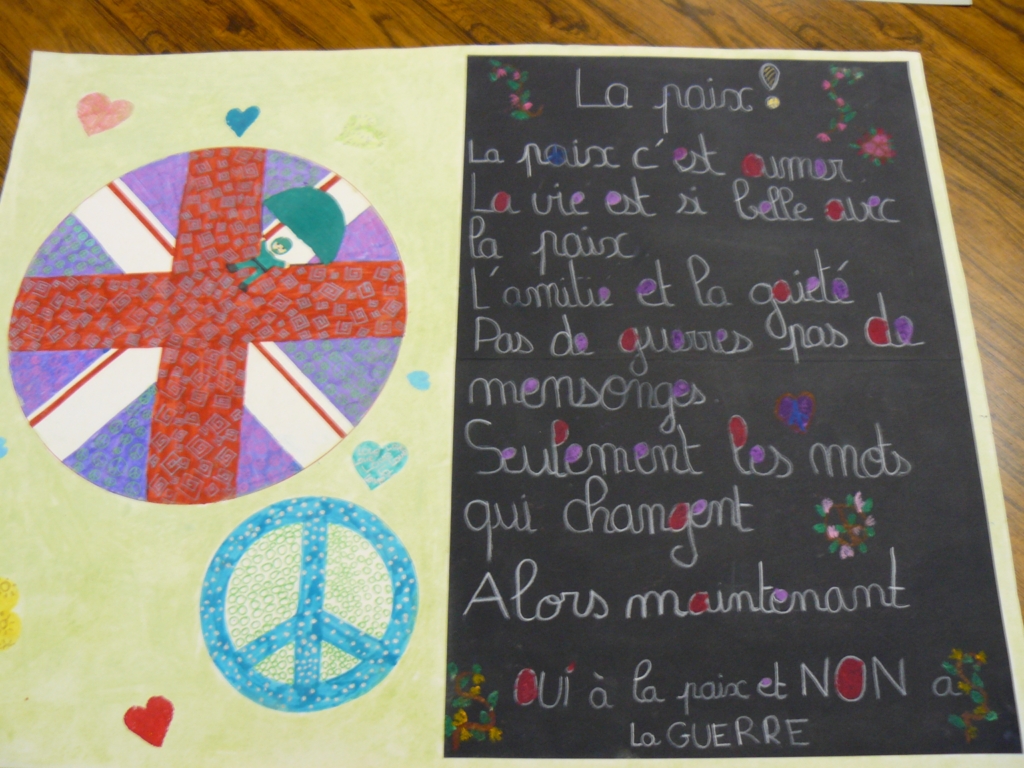 La paix !
La paix c'est aimer.
La vie est si belle avec
la paix
L'amitie et la gaieté
Pas de guerres pas de
mensonges.
Seulement les mots
qui changent
Alors maintenant
OUi à la paix et NON a
la GUERRE